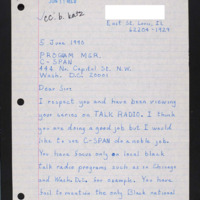 CC: B. Katz
East St. Louis, IL
62204-1929
5 June 1998
PROGRAM MGR.
C-SPAN
444 No. Capitol St. N.W.
Wash. D.C. 20001
Dear Sir:
I respect you and have been viewing
your series on TALK RADIO. I think
you are doing a good job but I would
like to see C-SPAN do a noble job.
You have focused only on local black
talk radio programs such as in Chicago
and Wash. D.C. for example. You have
fail to mention the only Black national